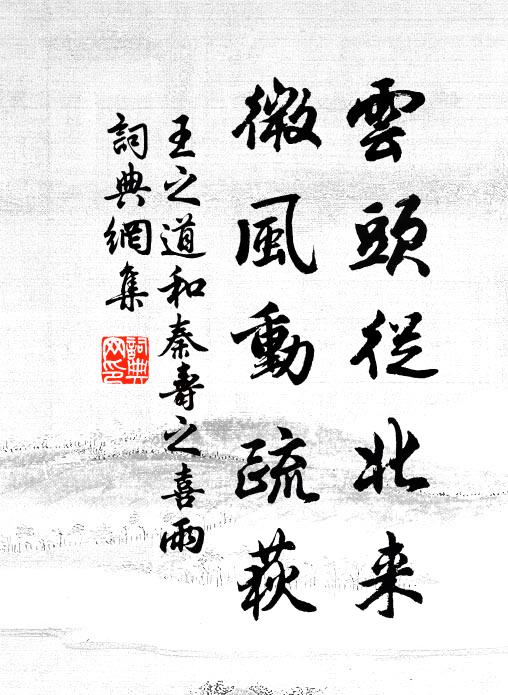 雲頭從北来
微風動疏荻
王之道和秦壽之喜雨
詞典網集
詞典網印